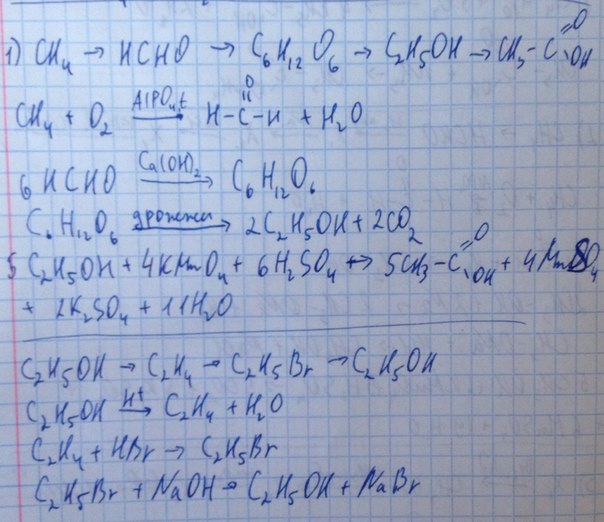 1) CH₄ → HCHO → C₆H₁₂O₆ → C₂H₅OH → CH₃-C(=O)OH
CH₄ + O₂ —AlPO₄,t→ H-C(=O)-H + H₂O
6 HCHO —Ca(OH)₂→ C₆H₁₂O₆
C₆H₁₂O₆ —дрожжи→ 2C₂H₅OH + 2CO₂
5 C₂H₅OH + 4KMnO₄ + 6H₂SO₄ → 5CH₃-C(=O)OH + 4MnSO₄
+ 2K₂SO₄ + 11H₂O
C₂H₅OH → C₂H₄ → C₂H₅Br → C₂H₅OH
C₂H₅OH —H⁺→ C₂H₄ + H₂O
C₂H₄ + HBr → C₂H₅Br
C₂H₅Br + NaOH → C₂H₅OH + NaBr